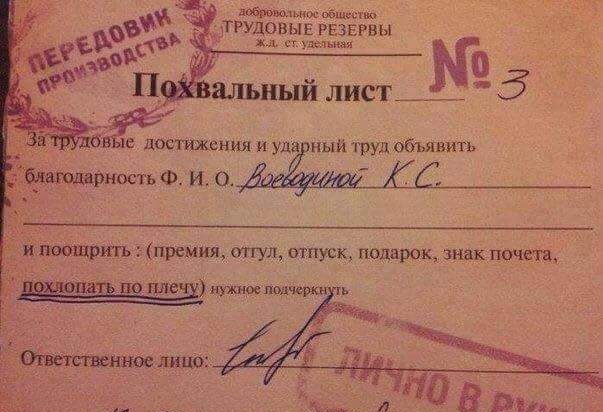 добровольное общество
ТРУДОВЫЕ РЕЗЕРВЫ
ж.д. ст. удельная
ПЕРЕДОВИК
ПРОИЗВОДСТВА
№ 3
Похвальный лист
За трудовые достижения и ударный труд объявить
благодарность Ф. И. О. Воеводиной К. С.
и поощрить : (премия, отгул, отпуск, подарок, знак почета,
похлопать по плечу) нужное подчеркнуть
Ответственное лицо:
ЛИЧНО В